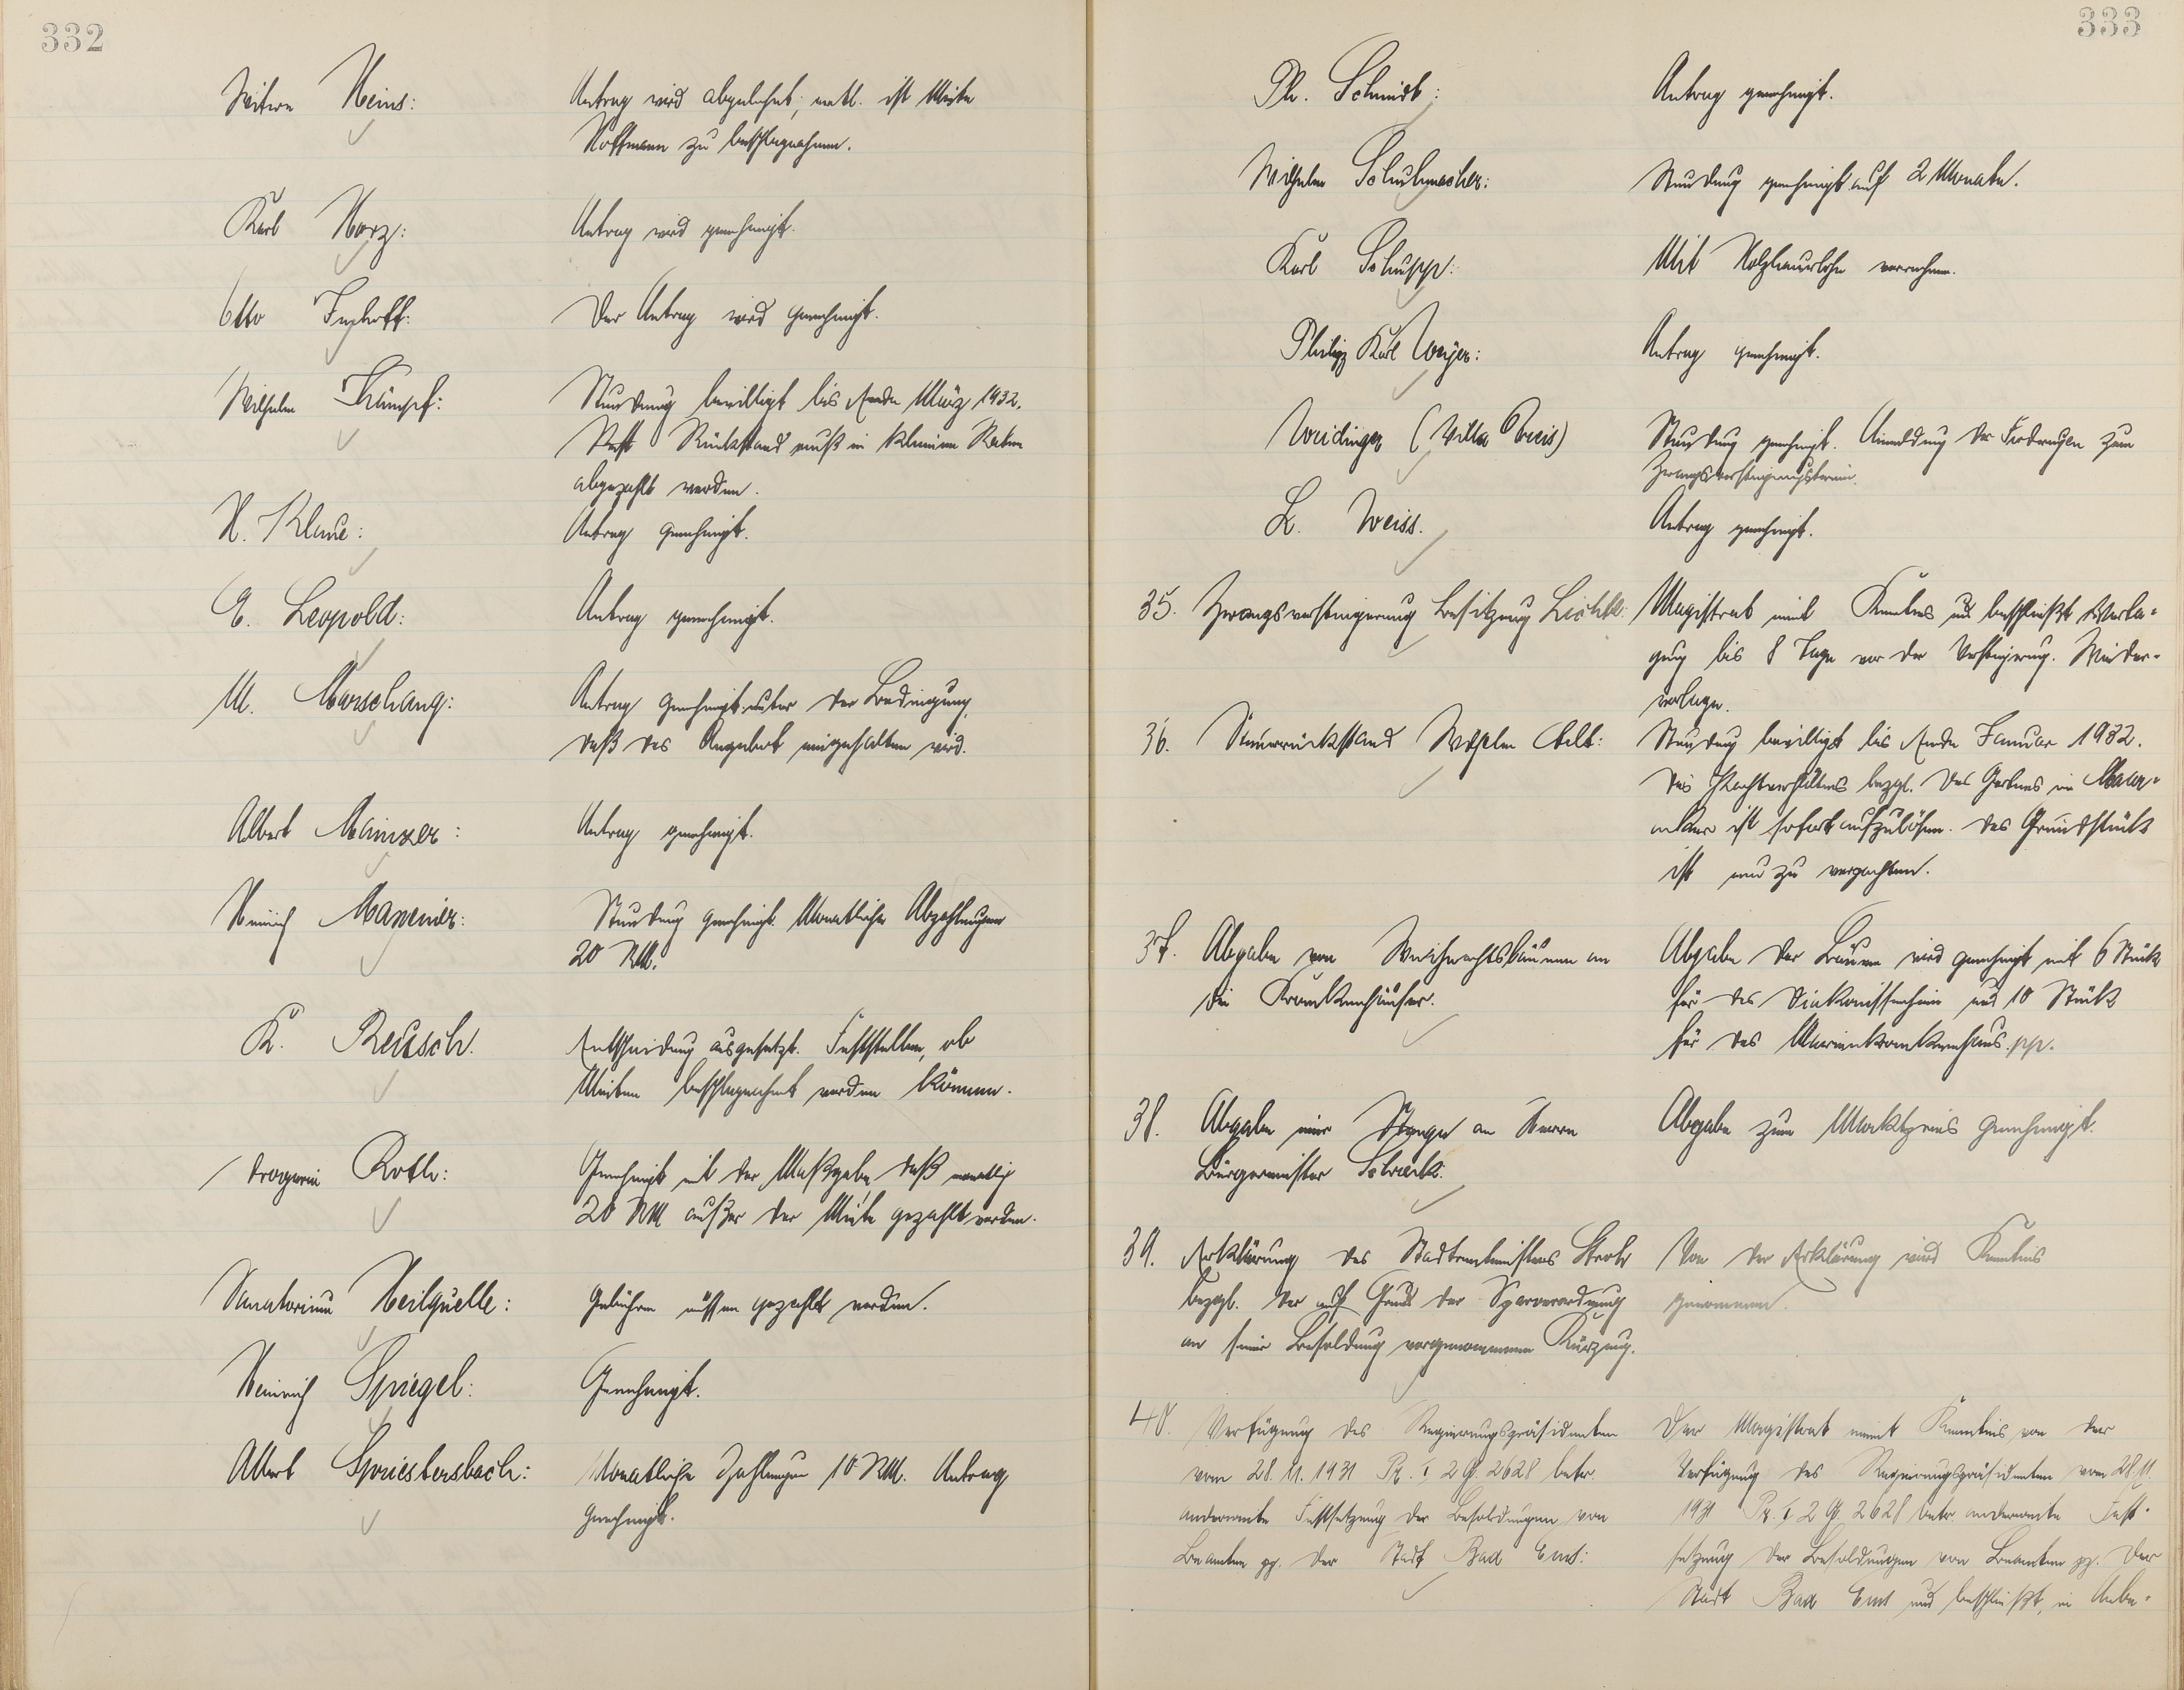 332
Witwe Heins:
Antrag wird abgelehnt; evtl. ist Miete
Hoffmann zu beschlagnahmen.
Karl Horz:
Antrag wird genehmigt.
Otto
Der Antrag wird genehmigt.
Wilhelm Kümpf:
Stundung bewilligt bis Ende März 1932.
Rest Rückstand muß in kleinen Raten
abgezahlt werden.
H. Klaue:
Antrag genehmigt.
E. Leopold:
Antrag genehmigt.
M. Marschang:
Antrag genehmigt unter der Bedingung,
daß das Angebot eingehalten wird.
Albert Mainzer:
Antrag genehmigt.
Heinrich
Stundung genehmigt. Monatliche Abzahlungen
20 RM.
K. Reusch.
Entscheidung ausgesetzt. Feststellen, ob
Mieten beschlagnahmt werden können.
Drogerie Roth:
Genehmigt mit der Maßgabe, daß monatlich
20 RM außer der Miete gezahlt werden.
Sanatorium Heilquelle:
Gebühren müssen gezahlt werden.
Heinrich Spiegel:
Genehmigt.
Albert Spriestersbach:
Monatliche Zahlungen 10 RM. Antrag
genehmigt.
333
Ph. Schmidt:
Antrag genehmigt.
Wilhelm Schuhmacher:
Stundung genehmigt auf 2 Monate.
Karl Schupp:
Mit Holzhauerlohn verrechnen.
Philipp Karl
Antrag genehmigt.
Weidinger (Villa
Stundung genehmigt. Anmeldung der Forderungen zum
Zwangsversteigerungstermin.
L. Weiss.
Antrag genehmigt.
35. Zwangsversteigerung Besitzung
Magistrat nimmt Kenntnis und beschließt Verta-
gung bis 8 Tage vor der Versteigerung. Wieder-
vorlage.
36. Steuerrückstand Wilhelm
Stundung bewilligt bis Ende Januar 1932.
Das Pachtverhältnis bezgl. des Gartens in
ist sofort aufzulösen. Das Grundstück
ist neu zu verpachten.
37. Abgabe von Weihnachtsbäumen an
die Krankenhäuser.
Abgabe der Bäume wird genehmigt mit 6 Stück
für das Diakonissenheim und 10 Stück
für das Marienkrankenhaus. pp.
38. Abgabe einer Stange an Herrn
Bürgermeister Schreck:
Abgabe zum Marktpreis genehmigt.
39. Erklärung des Stadtrentmeisters Stroh
bezgl. der auf Grund der Sparverordnung
an seiner Besoldung vorgenommenen Kürzung.
Von der Erklärung wird Kenntnis
genommen.
40. Verfügung des Regierungspräsidenten
vom 28.11.1931 Pr. I 2 G. 2628 betr.
anderweite Festsetzung der Besoldungen von
Beamten pp. der Stadt Bad Ems:
Der Magistrat nimmt Kenntnis von der
Verfügung des Regierungspräsidenten vom 28.11.
1931 Pr. I 2 G. 2628 betr. anderweite Fest-
setzung der Besoldungen von Beamten pp. der
Stadt Bad Ems und beschließt, in Anbe-